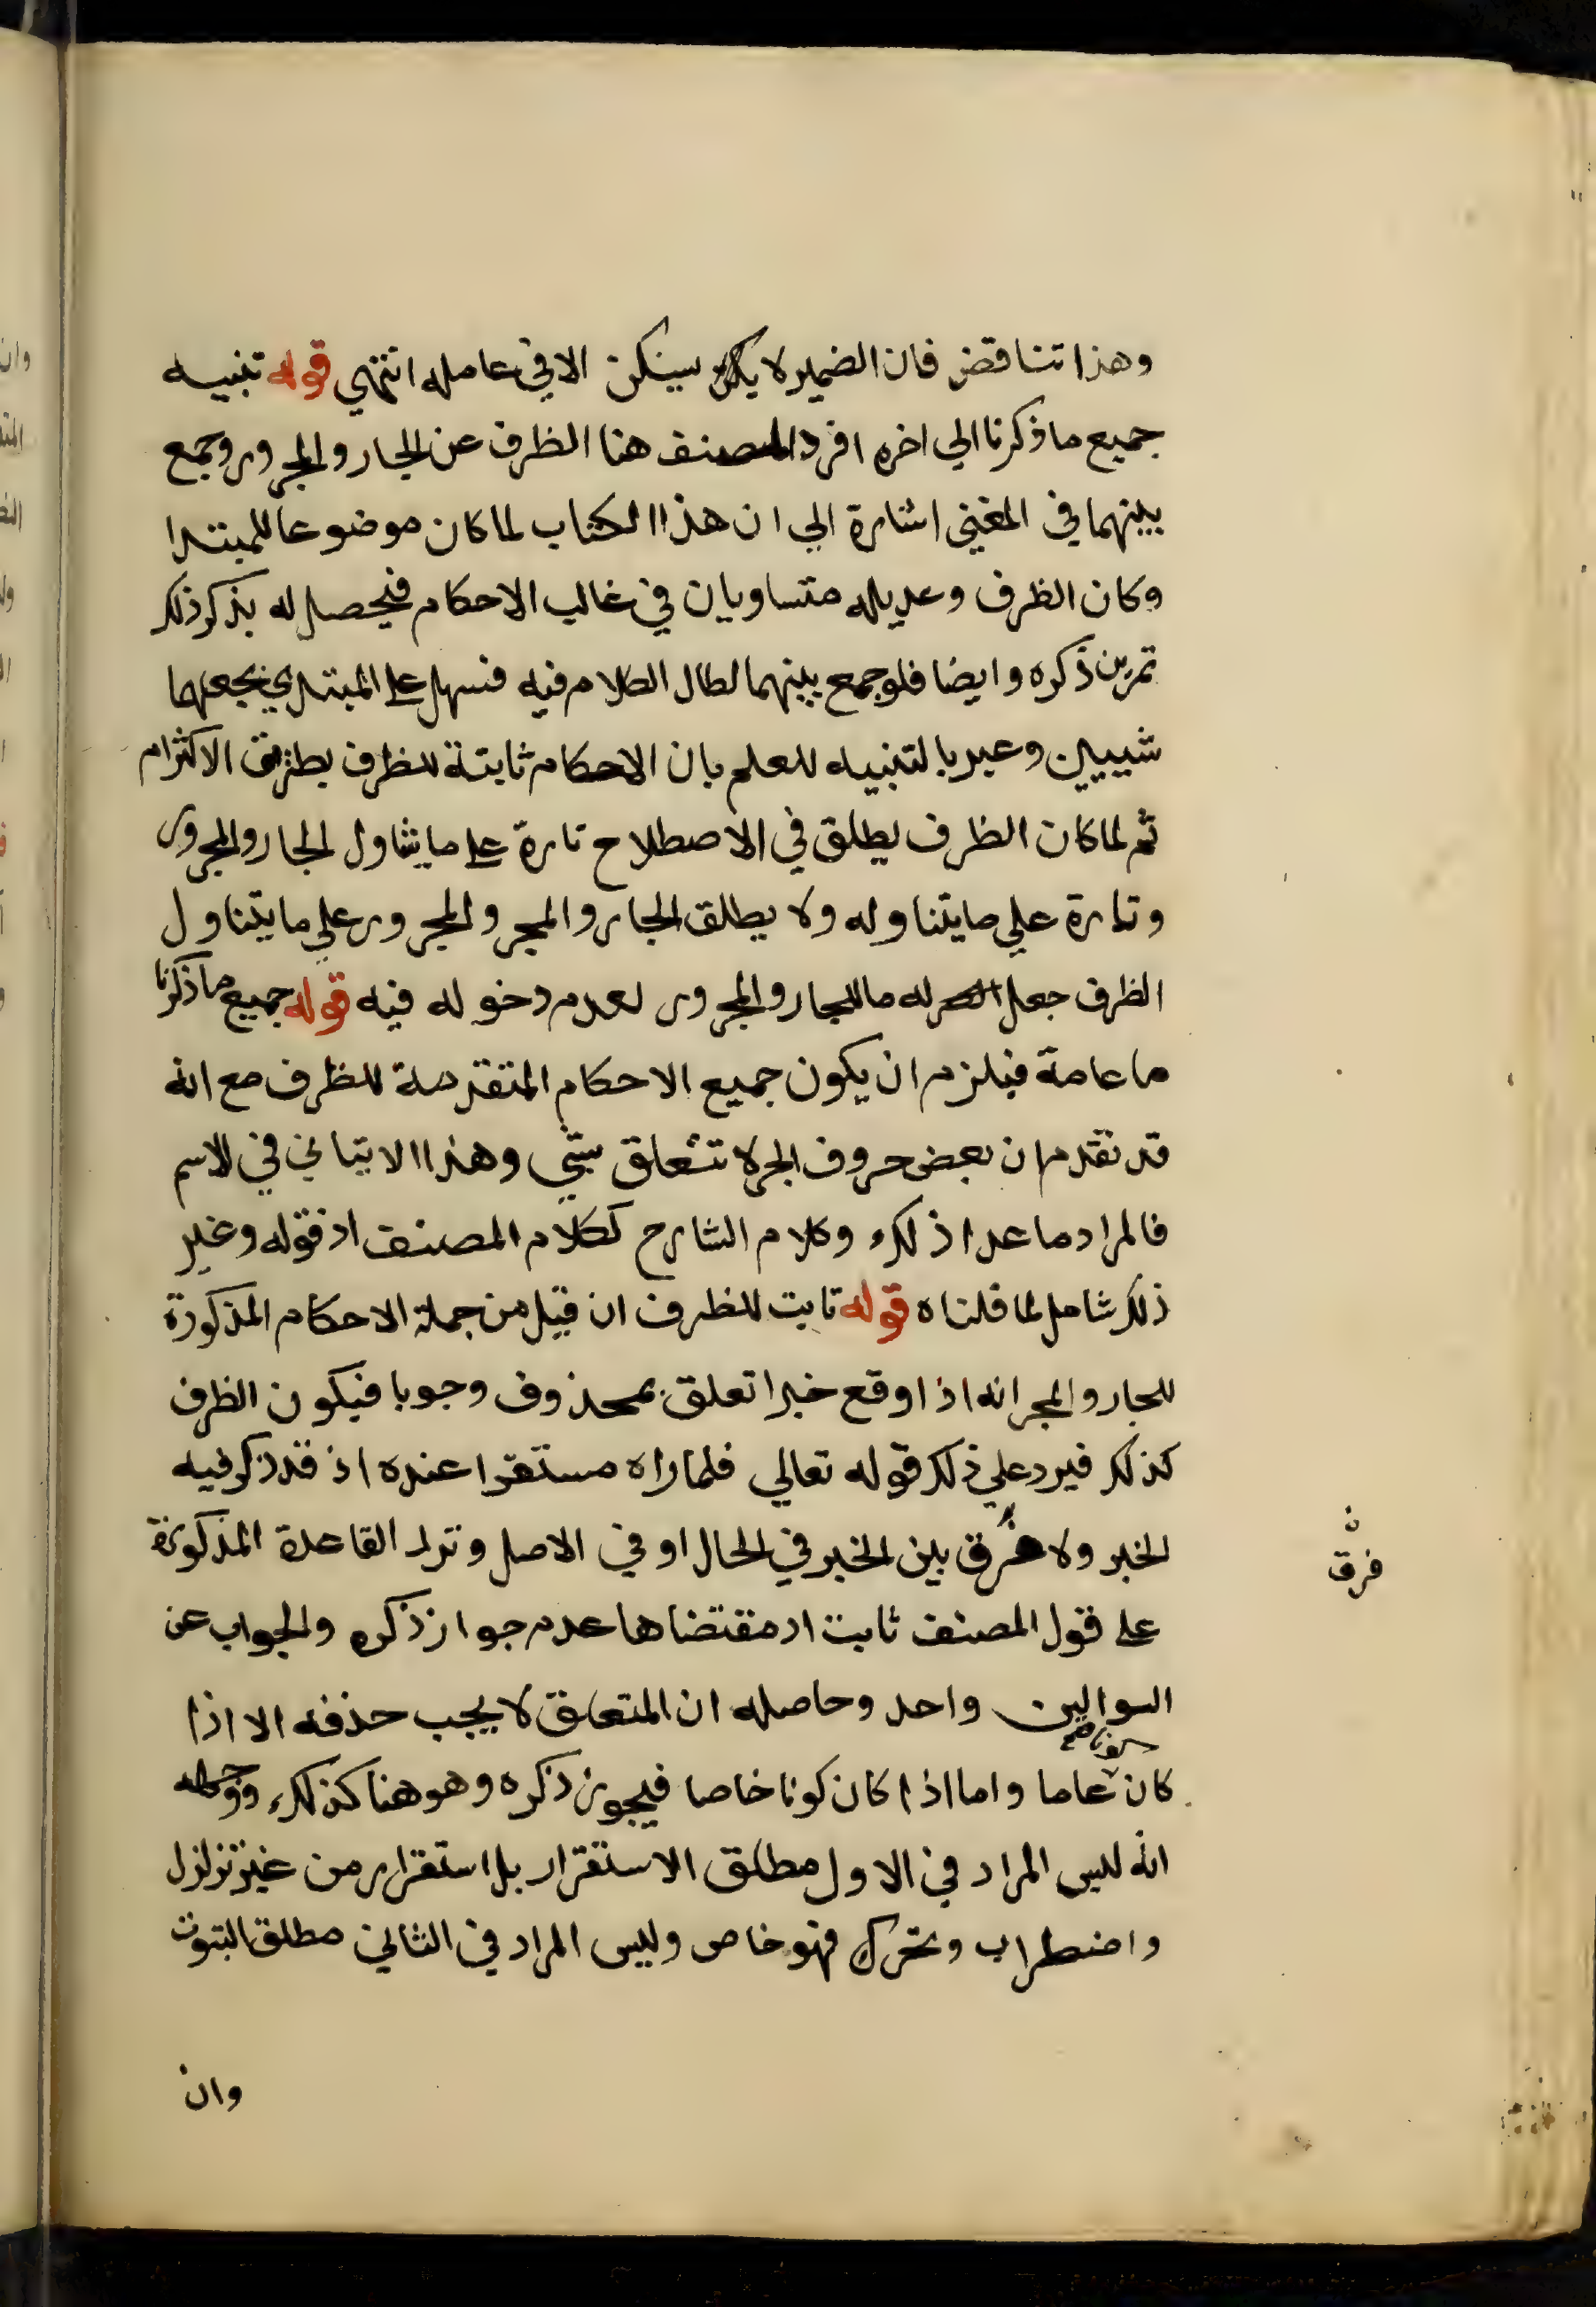 وهذا تناقض فان الضمير لا يستكن الا في عامله انتهي قوله تنبيه
جميع ما ذكرنا الي اخره افرد المصنف هنا الظرف عن الجار والمجرور وجمع
بينهما في المغني اشارة الي ان هذا الكتاب لما كان موضوعا للمبتدا
وكان الظرف وعديله متساويان في غالب الاحكام فيحصل له بذكر ذلك
تمرين ذكره وايضا فلو جمع بينهما لطال الكلام فيه فسهل علي المبتدي بجعلهما
شييين وعبر بالتنبيه للعلم بان الاحكام ثابتة للظرف بطريق الالتزام
ثم لما كان الظرف يطلق في الاصطلاح تارة علي ما يشاول الجار والمجرور
وتارة علي ما يتناوله ولا يطلق الجار والمجر والمجرور علي ما يتناول
الظرف جعل له ما للجار والمجرور لعدم دخوله فيه قوله جميع ما ذكرنا
ما عامة فيلزم ان يكون جميع الاحكام المتقدمة للظرف مع انه
قد تقدم ان بعض حروف الجر لا تتعلق بشي وهذا لا يتاتي في الاسم
فالمراد ما عدا ذلك وكلام الشارح ككلام المصنف اذ قوله وغير
ذلك شامل لما قلناه قوله ثابت للظرف ان قيل من جملة الاحكام المذكورة
للجار والمجر انه اذا وقع خبرا تعلق بمحذوف وجوبا فيكون الظرف
كذلك فيرد علي ذلك قوله تعالي فلما راه مستقرا عنده اذ قد ذكر فيه
الخبر ولا فرق بين الخبر في الحال او في الاصل وترد القاعدة المذكورة
ن
فرق
علي قول المصنف ثابت اذ مقتضاها عدم جواز ذكره والجواب عن
السوالين واحد وحاصله ان المتعلق لا يجب حذفه الا اذا
كان كونا عاما واما اذا كان كونا خاصا فيجوز ذكره وهو هنا كذلك ووجهه
انه ليس المراد في الاول مطلق الاستقرار بل استقرار من غير تزلزل
واضطراب وتحرك فهو خاص وليس المراد في الثاني مطلق الثبوت
وان